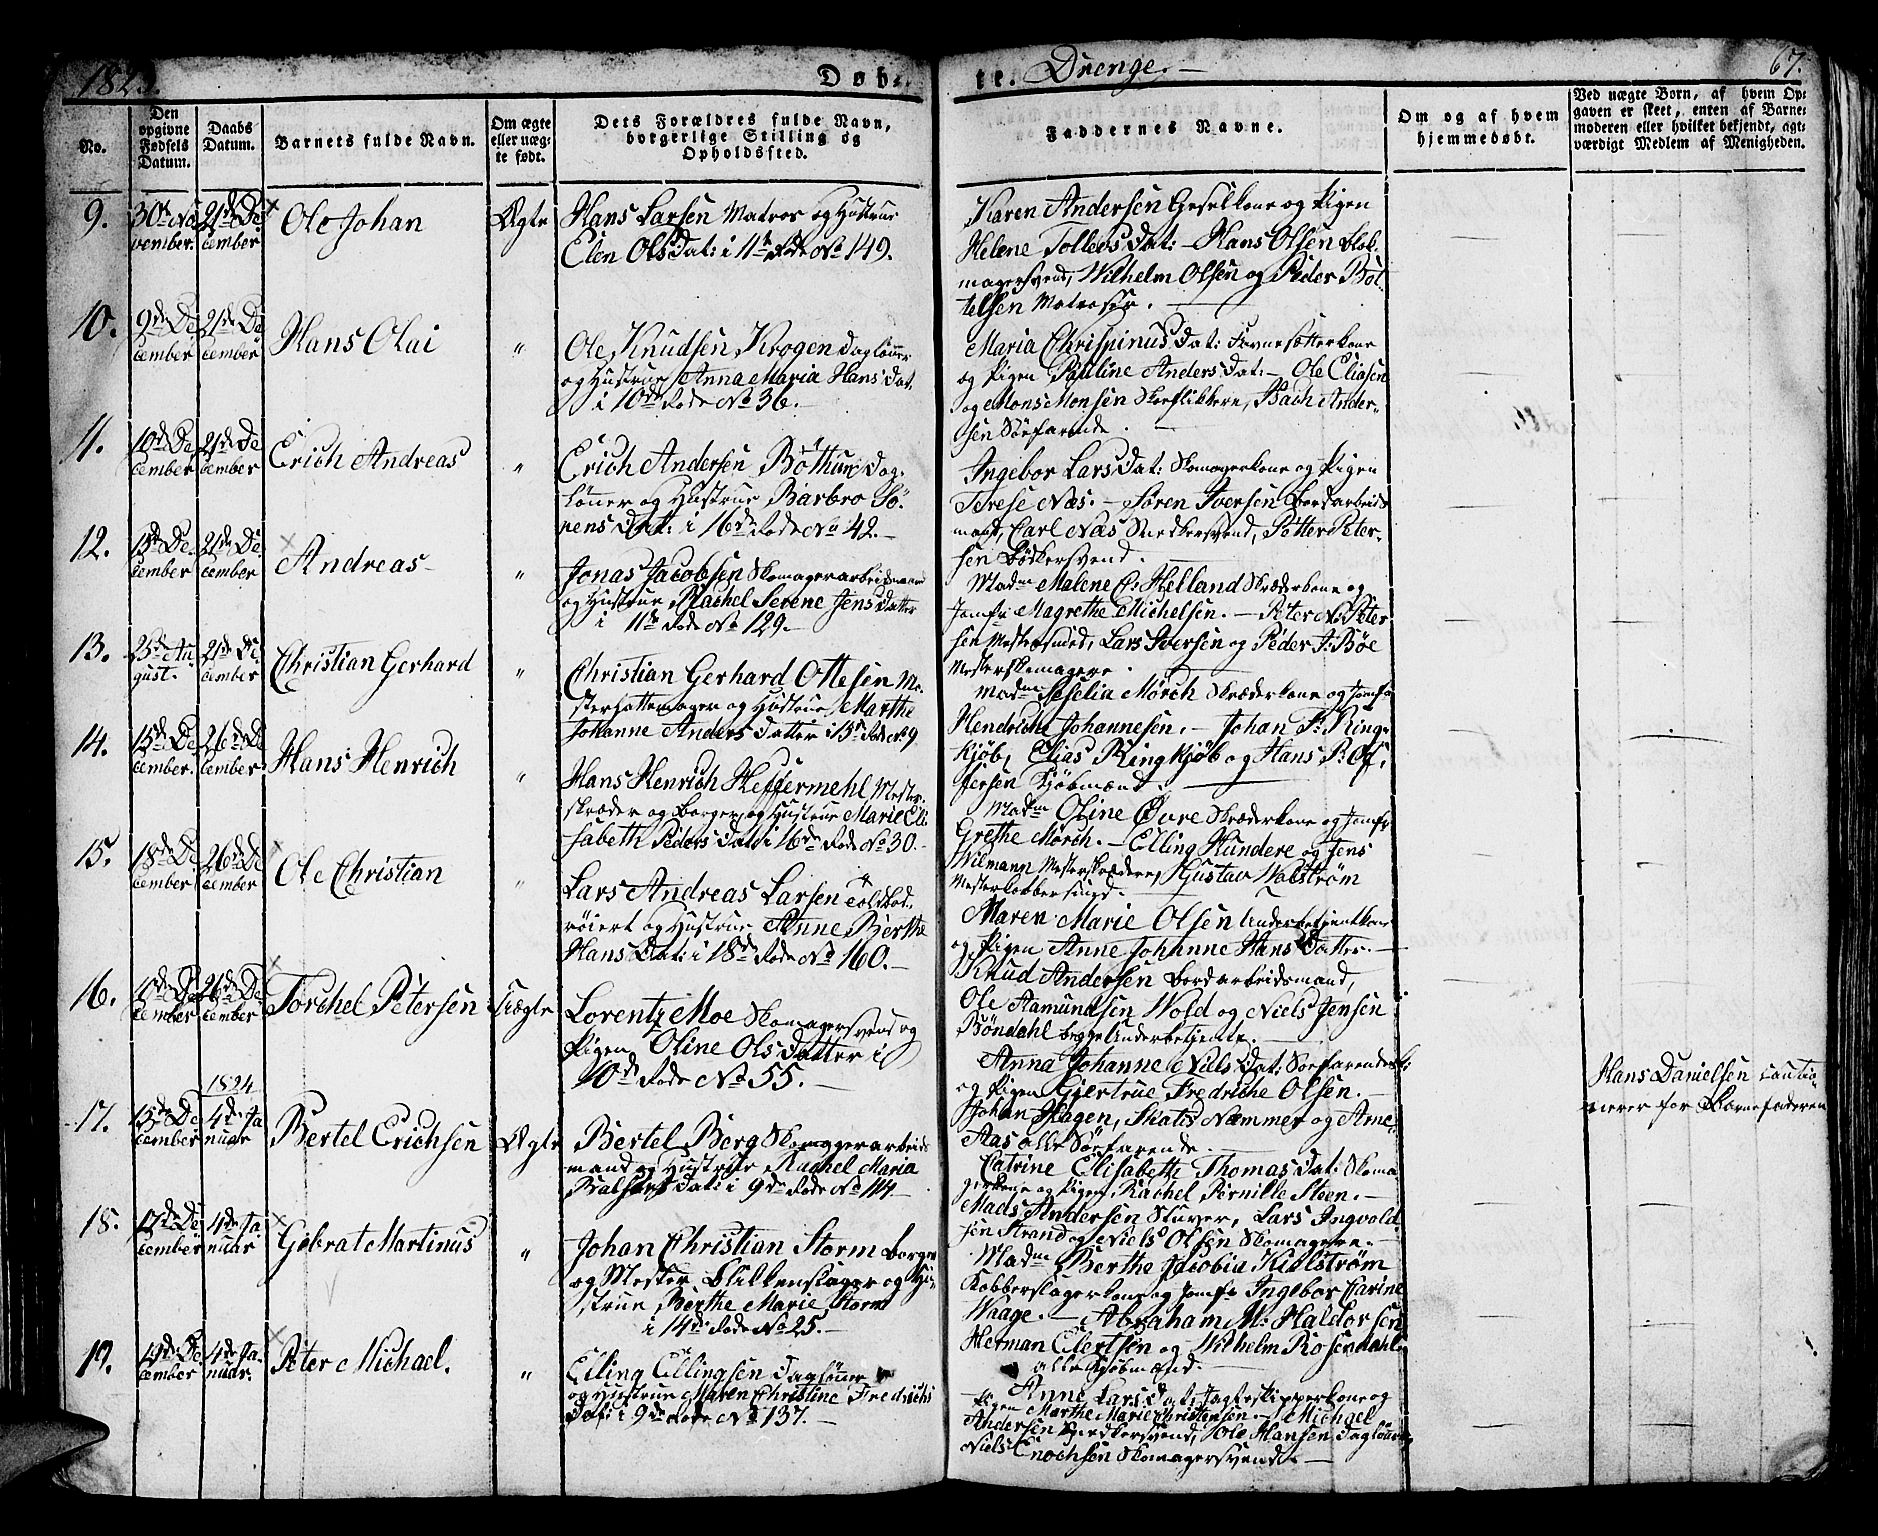 1823.
Døbte. Drenge. —
67.
No.
Den opgivne Fødsels Datum.
Daabs Datum.
Barnets fulde Navn.
Om ægte eller uægte født.
Dets Forældres fulde Navn, borgerlige Stilling og Opholdssted.
Faddernes Navne.
Om og af hvem hjemmedøbt.
Ved uægte Born, af hvem Opgaven er skeet, enten af Barnemoderen eller hvilket bekjendt, agtværdigt Medlem af Menigheden.
9.
30te No
vember.
21de De
cember
Ole Johan
Ægte
Hans Larsen Matros og Hustrue
Elen Ols Dat: i 11te Rode No 149.
Karen Andersen Geselkone og Pigen
Helene Tollevs Dat: — Hans Olsen Blok
magersvend, Wilhelm Olsen og Peder Bot
telsen Matroser. —
10.
9de De
cember
21de De
cember
Hans Olai
"
Ole Knudsen Krogen Dagløner
og Hustrue Anna Maria Hans Dat.
i 10de Rode No 36. —
Maria Chrispinus Dat: Favnesætterkone
og Pigen Pauline Anders Dat: — Ole Eliasen
og Mons Monsen Skoeflikkere, Bach Ander-
sen Søefarende. —
11.
10de De
cember
21de De
cember
Erich Andreas
"
Erich Andersen Bøthun Dag-
lønner og Hustrue Barbro Sø-
rens Dat: i 16de Rode No 42. —
Ingebor Lars Dat: Skomagerkone og Pigen
Terese Næs. — Søren Iversen Bordarbeids
mand, Carl Næs Snedkersvend, Petter Peter-
sen Bødkersvend. —
12.
13de De
cember
21de De
cember
Andreas —
"
Jonas Jacobsen Skomagerarbeidsmand
og Hustrue Rachel Serene Jens Datter
i 11te Rode No 129. —
Madm Malene C. Helland Skræderkone og
Jomfr: Magrethe Michelsen. — Peter N. Peter
sen Mestersmed, Lars Iversen og Peder J. Bøe
Mesterskomagere. —
13.
23de Au
gust.
21de De
cember
Christian Gerhard
"
Christian Gerhard Ottesen Me-
sterhattemager og Hustrue Marthe
Johanne Anders Datter i 15de Rode No 9
Madm Seselia Mørch Skræderkone og Jomfr
Hendriche Johannesen. — Johan F. Ring-
kjøb, Elias Ringkjøb og Hans P. Of,
fersen Kjøbmænd. —
14.
15de De
cember.
26de De
cember
Hans Henrich
"
Hans Henrich Heffermehl Mester-
skræder og Borger og Hustrue Marie Eli
sabeth Peders Dat: i 16de Rode No 30. —
Madm Oline Øvre Skræderkone og Jomfr
Grethe Mørch. — Elling Hundere og Jens
Wilmann Mesterskrædere, Gustav Walstrøm
Mesterkobbersmed. —
15.
18de De
cember
26de De
cember
Ole Christian
"
Lars Andreas Larsen Toldbod-
røiert og Hustrue Anne Berthe
Hans Dat: i 18de Rode No 160. —
Maren Marie Olsen Underbetjentkone
og Pigen Anne Johanne Hans Datter. —
Knud Andersen Bordarbeidsmand,
Ole Aamundsen Wold og Niels Jensen
Bøndahl begge Underbetjente. —
16.
10de De
cember
26de De
cember
Torchel Petersen
Uægte
Lorentz Moe Skomagersvend og
Pigen Oline Ols Datter i
10de Rode No 55. —
Anna Johanne Niels Dat: Søefarendek:
og Pigen Gjertrue Fredriche Olsen. —
Johan Hagen, Mats Næmmer og Arne
Aas alle Søefarende. —
Hans Danielsen cautio-
nerer for Barnefaderen
17.
15de De
cember
1824
4de Ja
nuar
Bertel Erichsen
Ægte
Bertel Berg Skomagerarbeids
mand og Hustrue Rachel Maria
Balsers Dat: i 9de Rode No 114 —
Catrine Elisabeth Thomas Dat: Skoma
gerkone og Pigen Rachel Pernille Steen. —
Mads Andersen Stuver, Lars Ingvald-
sen Strand og Niels Olsen Skomagere. —
18.
17de De
cember
4de Ja
nuar
Gebrat Martinus
"
Johan Christian Storm Borger
og Mester Blikkenslager og Hu-
strue Berthe Marie Storm
i 14de Rode No 25. —
Madm Berthe Jacobia Kielstrøm
Kobberslagerkone og Jomfr Ingebor Carine
Waage. — Abraham M. Haldorsen
Herman Elertsen og Wilhelm Rosendahl
alle Kjøbmænd. —
19.
19de De
cember
4de Ja-
nuar.
Peter Michael.
"
Elling Ellingsen Dagløner
og Hustrue Maren Christine Fredrichs
Dat: i 9de Rode No 137. —
Anne Lars Dat: Jagteskipperkone og
Pigen Marthe Marie Christensen. — Michael
Andersen Snedkersvend, Ole Hansen Dagløner og
Niels Enochsen Skomagersvend. —